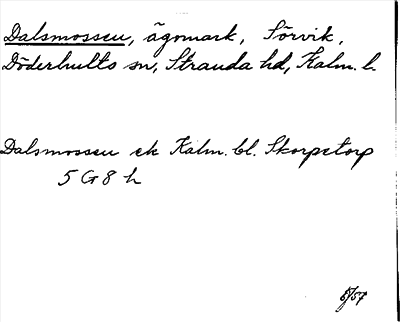 Dalsmossen, ägomark, Sörvik,
Döderhults sn, Stranda hd, Kalm. l.
Dalsmossen ek Kalm. bl. Skorpetorp
5 G 8 h
8/57